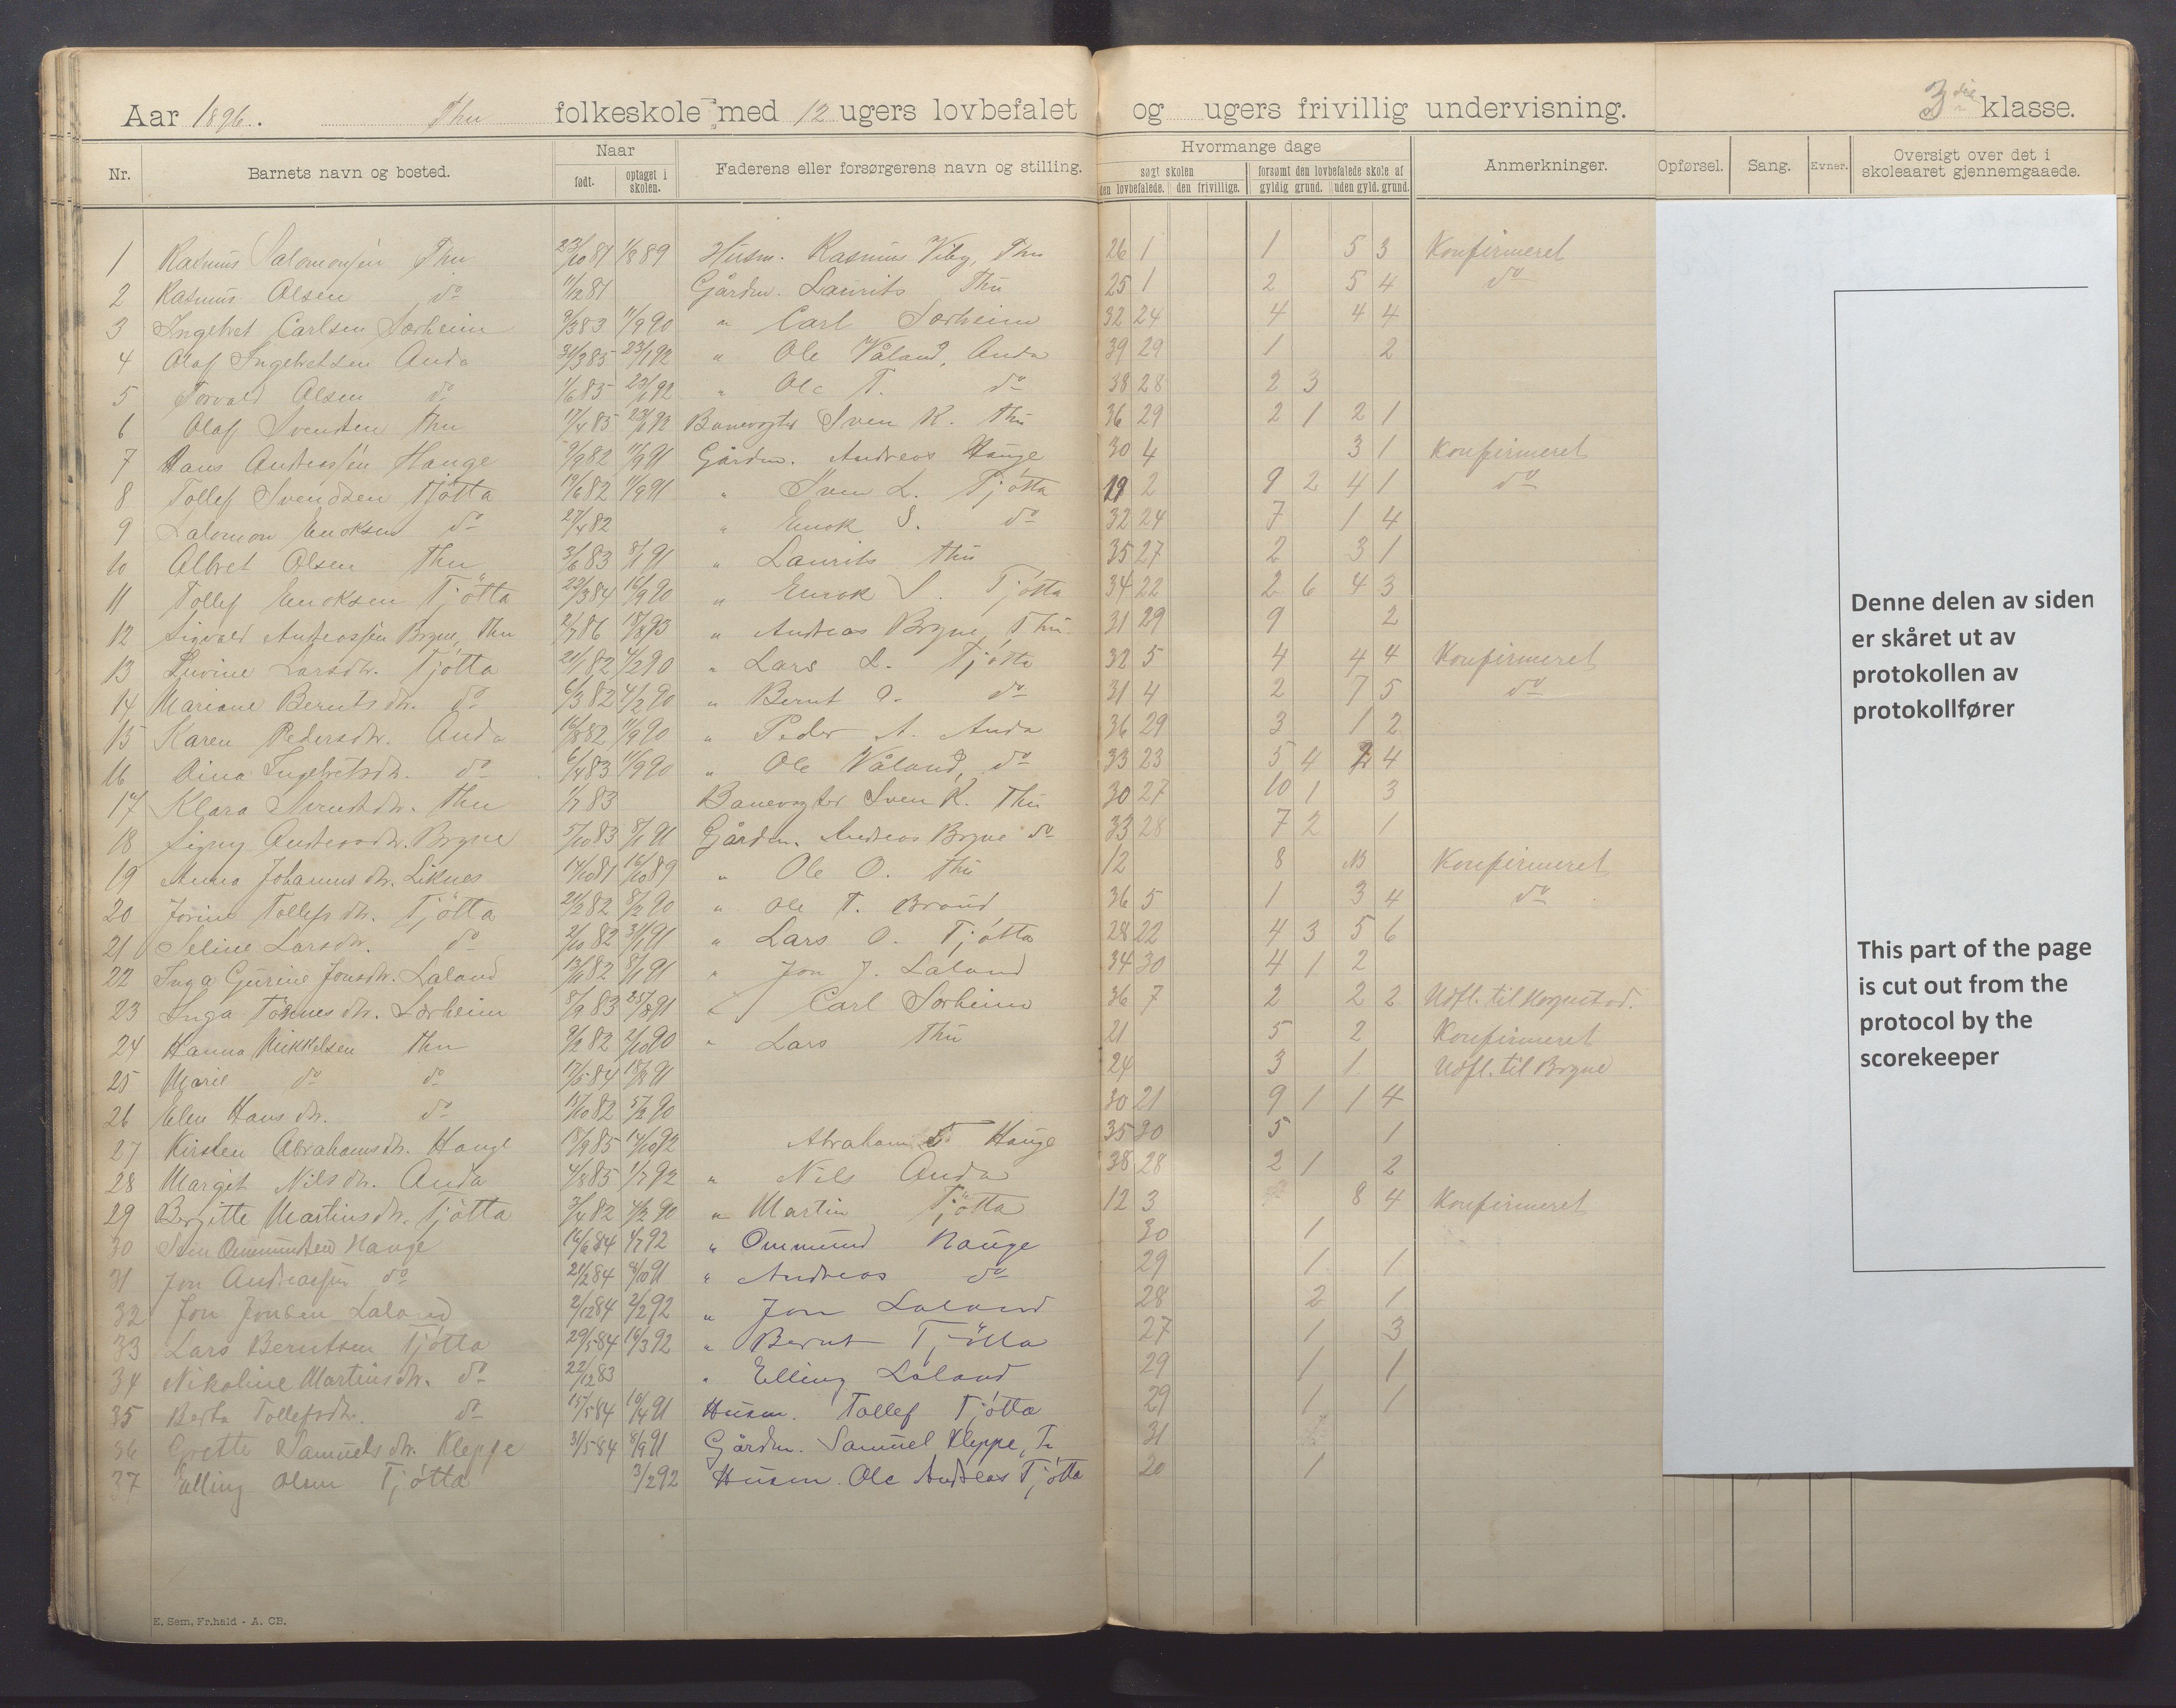 Aar 1896. Thu folkeskole med 12 ugers lovbefalet og ugers frivillig undervisning. 3die klasse.
Nr. Barnets navn og bosted. Naar født. optaget i skolen. Faderens eller forsørgerens navn og stilling. Hvormange dage søgt skolen den lovbefalede. den frivillige. forsømt den lovbefalede skole af gyldig grund. uden gyld. grund. Anmerkninger. Opførsel. Sang. Evner. Oversigt over det i skoleaaret gjennemgaaede.
1 Rasmus Salomonsen Thu 23/10 81 1/8 89 Husm. Rasmus Viby, Thu 26 1 1 5 3 Konfirmeret
2 Rasmus Olsen do 11/12 81 Gårdm. Laurits Thu 25 1 2 5 4 do
3 Ingebret Carlsen Sørheim 9/3 83 11/9 90 " Carl Sørheim 32 24 4 4 4
4 Olaf Ingebretsen Anda 31/3 85 23/1 92 " Ole Våland, Anda 39 29 1 2
5 Torvald Olsen do 1/6 85 23/1 92 " Ole T. do 38 28 2 3
6 Olaf Svendsen Thu 17/4 85 23/1 92 Banevogter Sven K. Thu 36 29 2 1 2 1
7 Hans Andreassen Hauge 9/9 82 11/9 91 Gårdm. Andreas Hauge 30 4 3 1 Konfirmeret
8 Tollef Svendsen Tjøtta 19/6 82 11/9 91 " Sven L. Tjøtta 19 2 9 2 4 1 do
9 Salomon Enoksen do 27/4 82 " Enok S. do 32 24 7 1 4
10 Albret Olsen Thu 3/6 83 8/1 91 " Laurits Thu 35 27 2 3 1
11 Tollef Enoksen Tjøtta 22/3 84 16/9 90 " Enok S. Tjøtta 34 22 2 6 4 3
12 Sigvald Andreassen Bryne, Thu 2/7 86 18/8 93 " Andreas Bryne, Thu 31 29 9 2
13 Larsdtr. Tjøtta 21/1 82 4/2 90 " Lars L. Tjøtta 32 5 4 4 4 Konfirmeret
14 Mariane Berntsdtr. do 6/3 82 4/2 90 " Bernt do 31 4 2 7 5 do
15 Karen Pedersdtr. Anda 16/8 82 11/9 90 " Peder A. Anda 36 29 3 1 2
16 Dina Ingebretsdtr. do 6/4 83 11/9 90 " Ole Våland, do 33 23 5 4 4
17 Klara Svendsdtr. Thu 1/7 83 Banevogter Sven K. Thu 30 27 10 1 3
18 Signy Andreasdtr. Bryne 5/10 83 8/1 91 Gårdm. Andreas Bryne do 33 28 7 2 1
19 Anna Johannesdtr. Liknes 14/10 81 16/10 89 " Ole O. Thu 12 8 13 Konfirmeret
20 Jorine Tollefsdtr. Tjøtta 21/2 82 8/2 90 " Ole T. Braud 36 5 1 3 4 do
21 Seline Larsdtr. do 2/10 82 31/1 91 " Lars O. Tjøtta 28 22 4 3 5 6
22 Inga Gurine Jonsdtr. Laland 13/6 82 8/1 91 " Jon J. Laland 34 30 4 1 2
23 Inga Tønnesdtr. Sørheim 8/9 83 25/8 91 " Carl Sørheim 36 7 2 2 2 Udfl. til Hognestad.
24 Hanna Mikkelsen Thu 9/2 82 2/10 90 " Lars Thu 21 5 2 Konfirmeret
25 Marie do do 17/5 84 18/8 91 24 3 1 Udfl. til Bryne
26 Elen Hansdtr. do 15/10 82 5/2 90 30 21 9 1 1 4
27 Kirsten Abrahamsdtr. Hauge 18/9 85 14/10 92 Abraham T Hauge 35 30 5 1
28 Margit Nilsdtr. Anda 4/8 85 1/7 92 " Nils Anda 38 28 2 1 2
29 Bergitte Martinsdtr. Tjøtta 3/4 82 4/2 90 " Martin Tjøtta 12 3 8 4 Konfirmeret
30 Sven Ommundsen Hauge 16/6 84 1/7 92 " Ommund Hauge 30 1
31 Jon Andreassen do 21/2 84 8/10 91 " Andreas do 29 1 1
32 Jon Jonsen Laland 2/12 84 2/2 92 " Jon Laland 28 2 1
33 Lars Berntsen Tjøtta 29/5 84 16/3 92 " Bernt Tjøtta 27 1 3
34 Nikoline Martinsdtr. do 22/12 83 " Elling Laland 29 1 1
35 Berta Tollefsdtr. do 15/5 84 10/4 91 Husm. Tollef Tjøtta 29 1 1
36 Grette Samuelsdtr. Kleppe 31/5 84 8/9 91 Gårdm. Samuel Kleppe, T 31
37 Elling Olsen Tjøtta 3/2 92 Husm. Ole Andreas Tjøtta 20 1
E. Sem, Fr.hald - A. CB.
Denne delen av siden
er skåret ut av
protokollen av
protokollfører
This part of the page
is cut out from the
protocol by the
scorekeeper